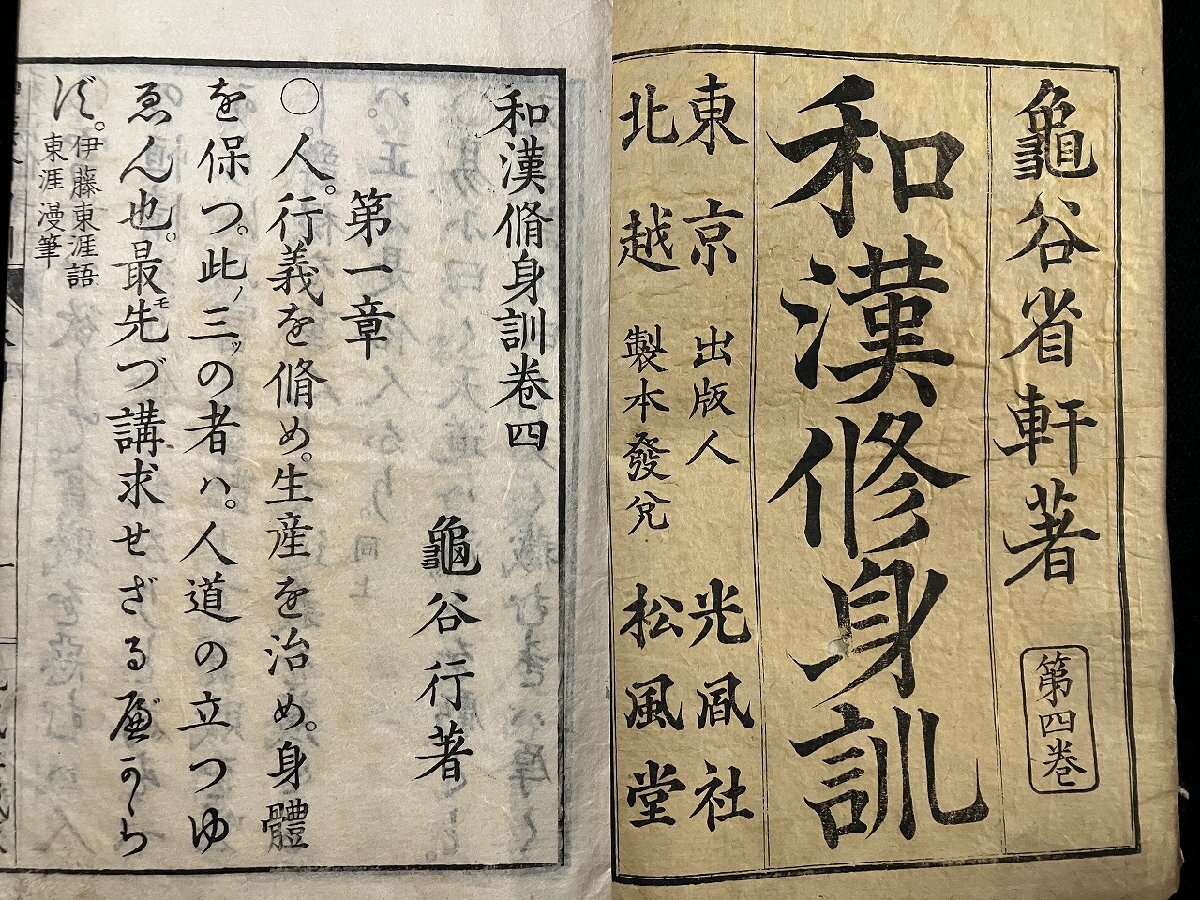 龜谷省軒著
第四巻
和漢修身訓
東京 出版人 光風社
北越 製本發兌 松風堂
和漢脩身訓卷四
龜谷行著
第一章
○人。行義を脩め。生産を治め。身體
を保つ。此ノ三ツの者ハ。人道の立つゆ
ゑん也。最モ先づ講求せざる可から
ず。伊藤東涯語
東涯漫筆